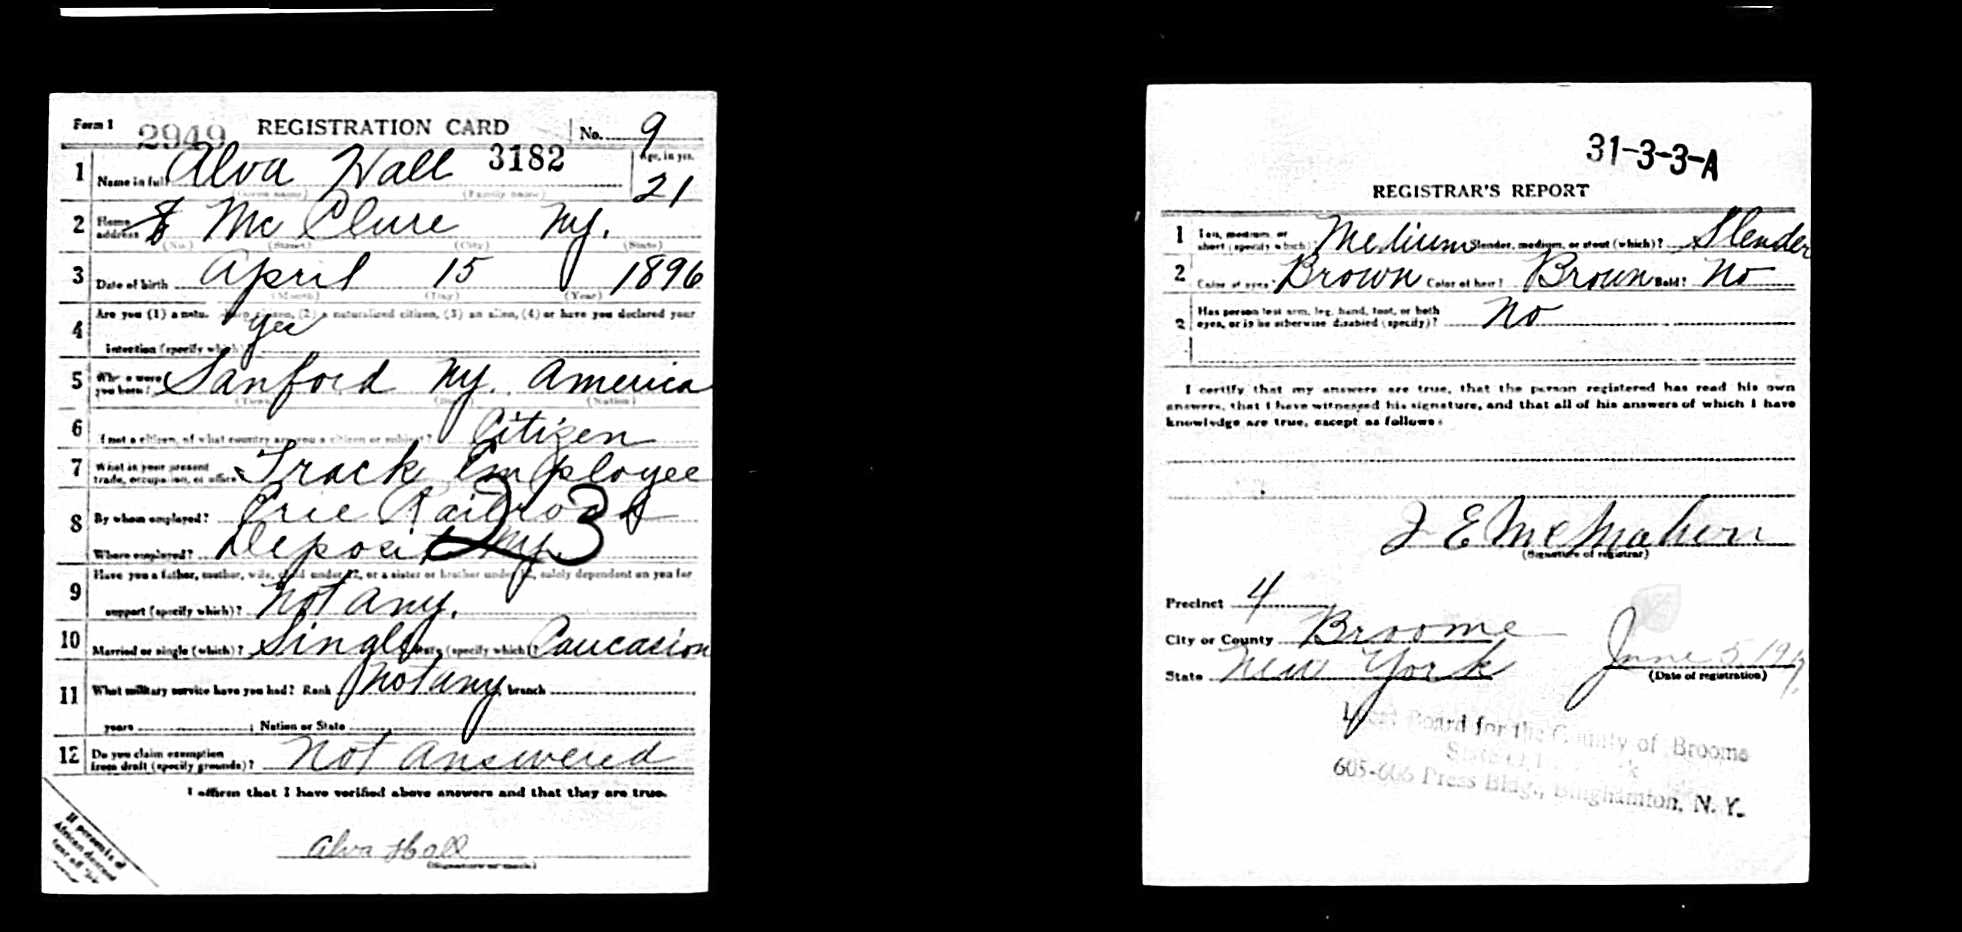 Form 1 2949 REGISTRATION CARD No. 9
1 Name in full Alva Hall 3182 Age, in yrs. 21
(Given name) (Family name)
2 Home address Mc Clure Ny.
(No.) (Street) (City) (State)
3 Date of birth April 15 1896
(Month) (Day) (Year)
4 Are you (1) a natural born citizen, (2) a naturalized citizen, (3) an alien, (4) or have you declared your
intention (specify which)? Yes
5 Where were you born? Sanford Ny. America
(Town) (State) (Nation)
6 If not a citizen, of what country are you a citizen or subject? Citizen
7 What is your present trade, occupation, or office? Track Employee
8 By whom employed? Erie Railroad
Where employed? Deposit Ny. 23
9 Have you a father, mother, wife, child under 12, or a sister or brother under 12, solely dependent on you for
support (specify which)? Not any.
10 Married or single (which)? Single Race (specify which)? Caucasion
11 What military service have you had? Rank Not any branch
years ; Nation or State
12 Do you claim exemption from draft (specify grounds)? Not answered
I affirm that I have verified above answers and that they are true.
Alva Hall
(Signature or mark)
If person is of African descent tear off
31-3-3-A
REGISTRAR'S REPORT
1 Tall, medium, or short (specify which)? Medium Slender, medium, or stout (which)? Slender
2 Color of eyes? Brown Color of hair? Brown Bald? No
3 Has person lost arm, leg, hand, foot, or both eyes, or is he otherwise disabled (specify)? No
I certify that my answers are true, that the person registered has read his own
answers, that I have witnessed his signature, and that all of his answers of which I have
knowledge are true, except as follows:
J E McMahon
(Signature of registrar)
Precinct 4
City or County Broome
State New York June 5 1917
(Date of registration)
Local Board for the County of Broome
State of New York
605-606 Press Bldg., Binghamton, N. Y.